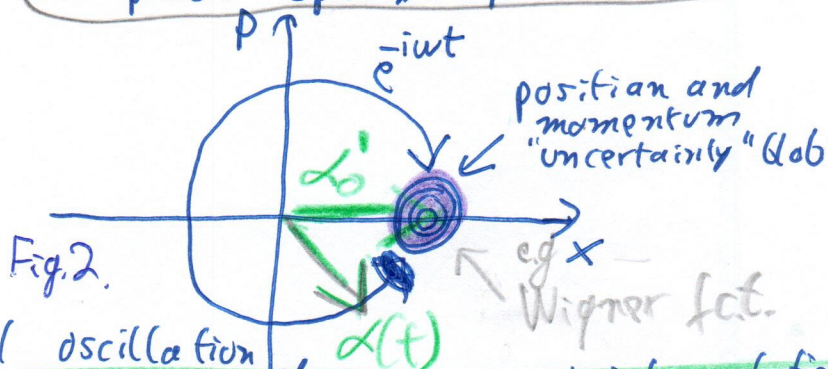 P
e^-iωt
position and
momentum
"uncertainly" blob
α₀
x
e.g
Wigner fct.
Fig.2.
α(t)
oscillation